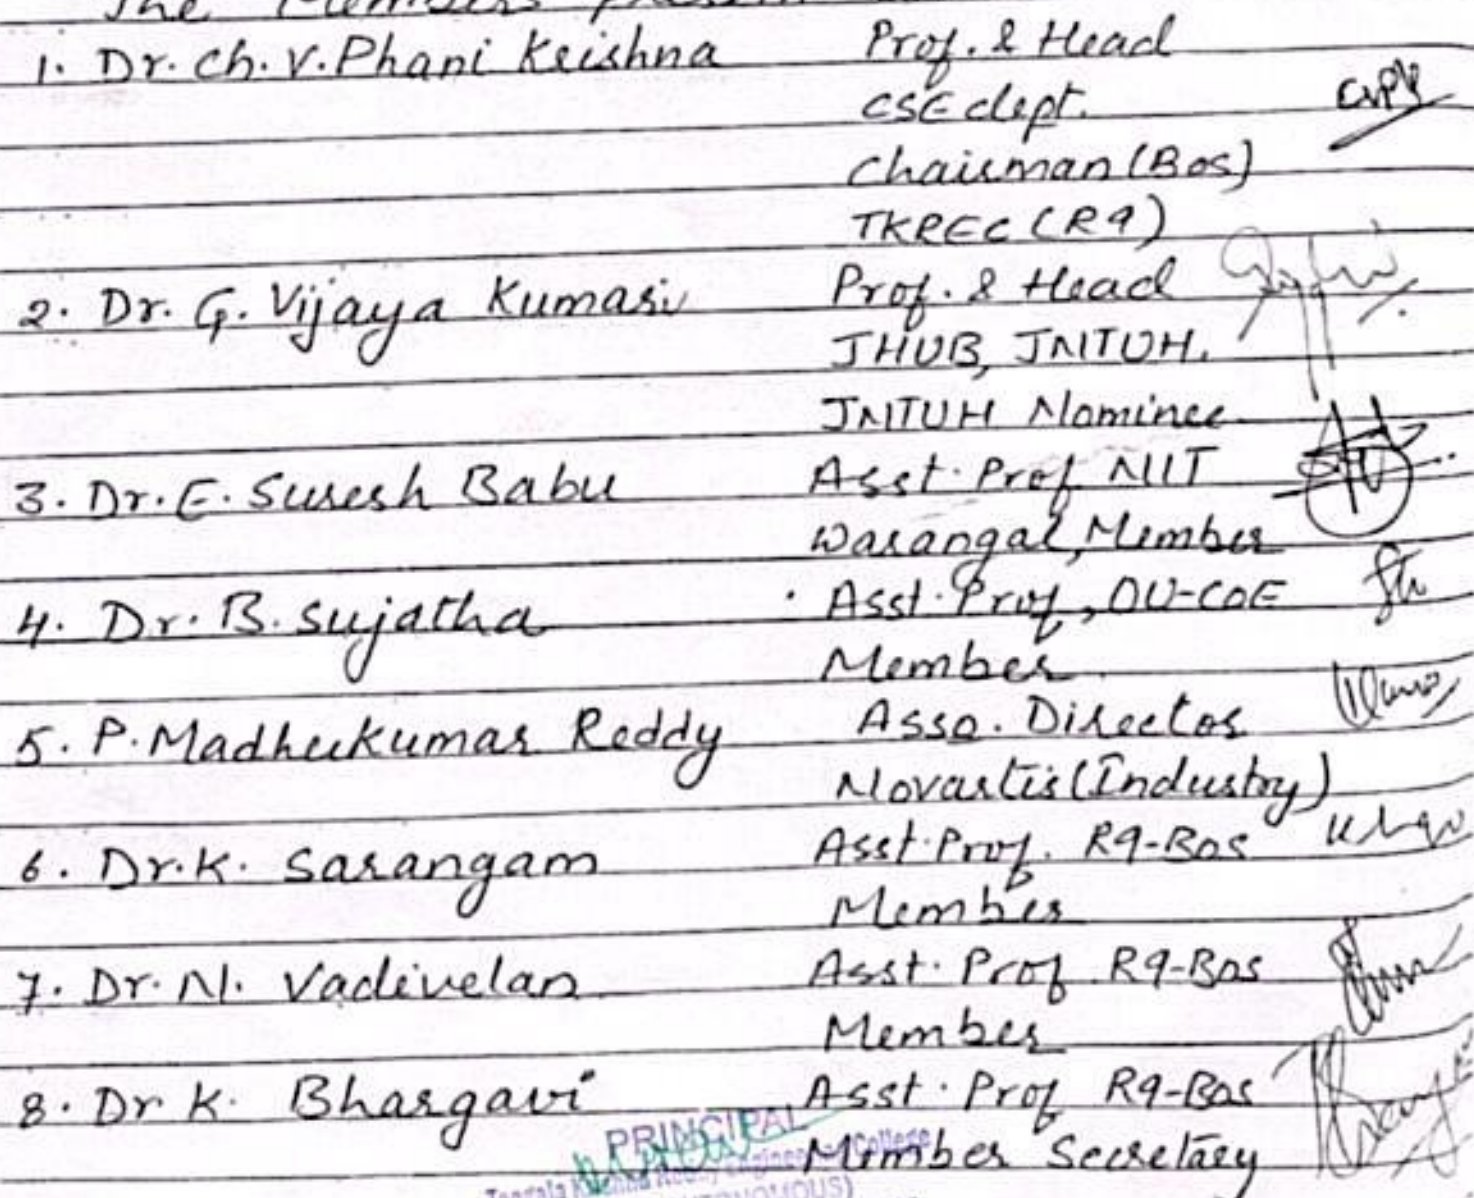 The Members present
1. Dr. Ch. V. Phani Krishna Prof. & Head
CSE dept.
Chairman (Bos)
TKREC (R9)
2. Dr. G. Vijaya Kumari Prof. & Head
JHUB, JNTUH.
JNTUH Nominee
3. Dr. E. Suresh Babu Asst. Prof NIT
Warangal, Member
4. Dr. B. Sujatha Asst. Prof, OU-COE
Member
5. P. Madhukumar Reddy Asso. Director
Novartis (Industry)
6. Dr. K. Sarangam Asst. Prof. R9-Bos
Member
7. Dr. N. Vadivelan Asst. Prof R9-Bos
Member
8. Dr K. Bhargavi Asst. Prof R9-Bos
Member Secretary
PRINCIPAL
Teegala Krishna Reddy Engineering College
(AUTONOMOUS)